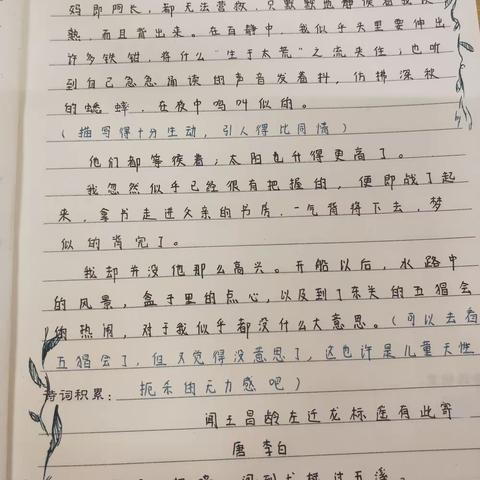 妈即阿长，都无法营救，只默默地静候着我读
熟，而且背出来。在百静中，我似乎头里要伸出
许多铁钳，将什么"生于太荒"之流夹住；也听
到自己急急诵读的声音发着抖，仿拂深秋
的蟋蟀，在夜中鸣叫似的。
（描写得十分生动，引人得比同情）
他们都等候着；太阳也升得更高了。
我忽然似乎已经很有把握的，便即战了起
来，拿书走进父亲的书房，一气背将下去，梦
似的背完了。
我却并没他那么高兴。开船以后，水路中
的风景，盒子里的点心，以及到了东关的五猖会
的热闹，对于我似乎都没什么大意思。（可以去看
五猖会了，但又觉得没意思了，这也许是儿童天性
扼杀的无力感吧）
诗词积累：
闻王昌龄左迁龙标遥有此寄
唐 李白
闻到龙标过五溪。